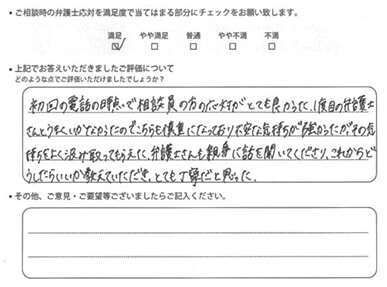 • ご相談時の弁護士応対を満足度で当てはまる部分にチェックをお願い致します。
満足 やや満足 普通 やや不満 不満
• 上記でお答えいただきましたご評価について
どのような点でご評価いただけましたでしょうか?
初回の電話の時点で相談員の方の応対がとても良かった。1度目の弁護士
さんとうまくいかなかったのでこちらも慎重になっており不安な気持ちが強かったが、その気
持ちをよく汲み取ってもらえた。弁護士さんも親身に話を聞いてくださり、これからど
うしたらいいか教えていただき、とても丁寧だと思った。
• その他、ご意見・ご要望等ございましたらご記入ください。